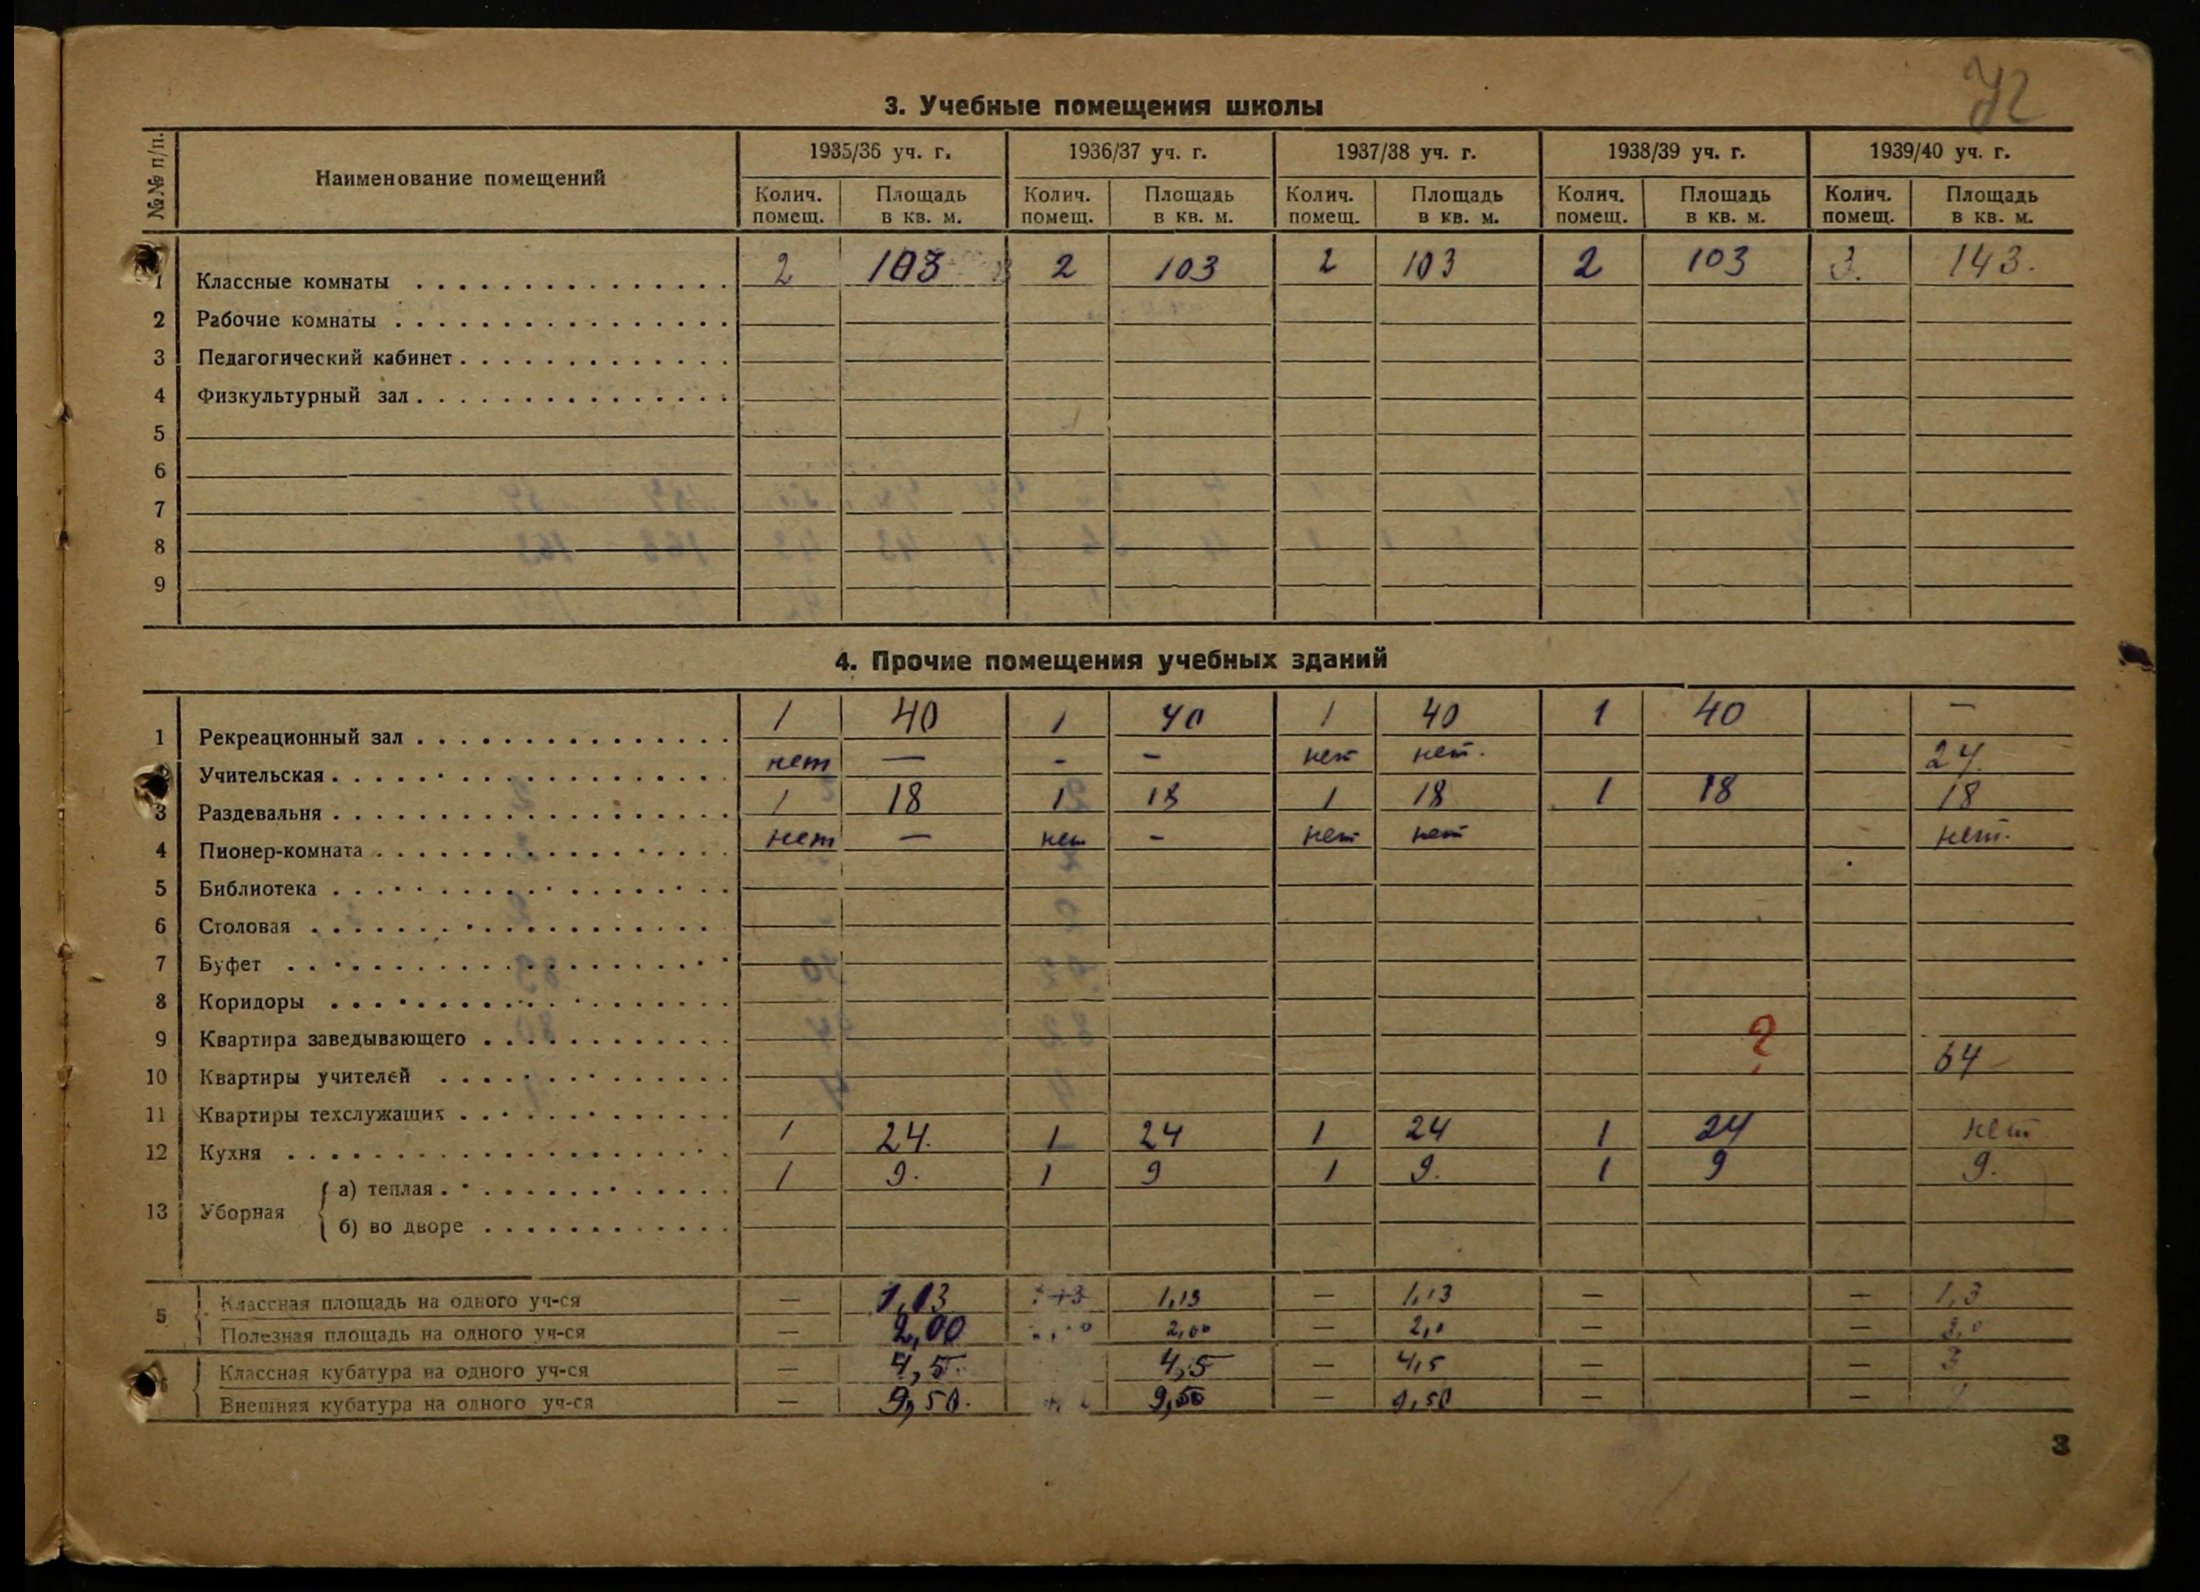 72
3. Учебные помещения школы
№№ п/п. Наименование помещений 1935/36 уч. г. 1936/37 уч. г. 1937/38 уч. г. 1938/39 уч. г. 1939/40 уч. г.
Колич. помещ. Площадь в кв. м. Колич. помещ. Площадь в кв. м. Колич. помещ. Площадь в кв. м. Колич. помещ. Площадь в кв. м. Колич. помещ. Площадь в кв. м.
1 Классные комнаты 2 103 2 103 2 103 2 103 3. 143.
2 Рабочие комнаты
3 Педагогический кабинет
4 Физкультурный зал
5
6
7
8
9
4. Прочие помещения учебных зданий
1 Рекреационный зал 1 40 1 40 1 40 1 40 —
Учительская нет — - — нет нет. 24.
3 Раздевальня 1 18 1 18 1 18 1 18 18
4 Пионер-комната нет — нет - нет нет нет.
5 Библиотека
6 Столовая
7 Буфет
8 Коридоры
9 Квартира заведывающего ?
10 Квартиры учителей 64
11 Квартиры техслужащих
12 Кухня 1 24. 1 24 1 24 1 24 нет
13 Уборная а) теплая 1 9. 1 9 1 9. 1 9 9.
б) во дворе
5 Классная площадь на одного уч-ся — 1,13 1,13 — 1,13 — — 1,3
Полезная площадь на одного уч-ся — 2,00 2,00 — 2,0 — —
Классная кубатура на одного уч-ся — 4,5. 4,5 — 4,5 — — 3
Внешняя кубатура на одного уч-ся — 9,50. 9,50 — 9,50 — —
3